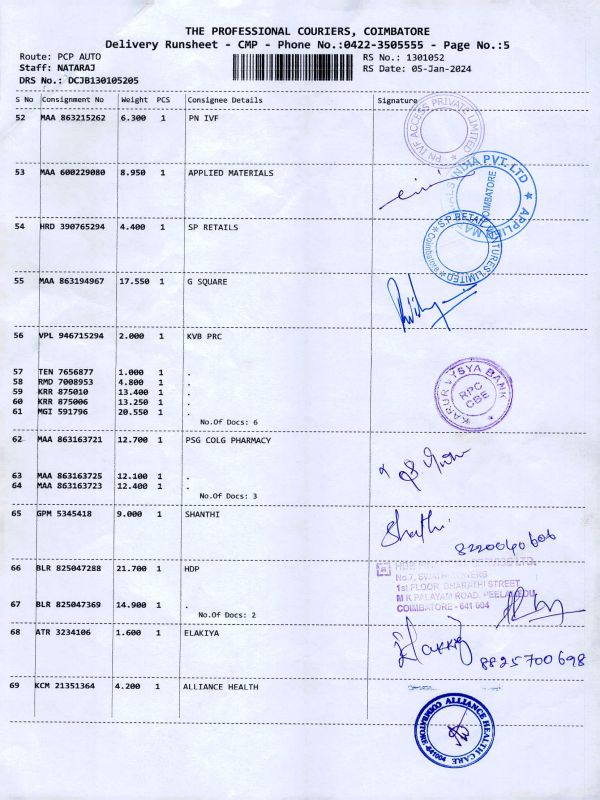 THE PROFESSIONAL COURIERS, COIMBATORE
Delivery Runsheet - CMP - Phone No.:0422-3505555 - Page No.:5
Route: PCP AUTO RS No.: 1301052
Staff: NATARAJ RS Date: 05-Jan-2024
DRS No.: DCJB130105205
S No Consignment No Weight PCS Consignee Details Signature
52 MAA 863215262 6.300 1 PN IVF
PN IVF ACCESS PRIVATE LIMITED
53 MAA 600229080 8.950 1 APPLIED MATERIALS
INDIA PVT. LTD
COIMBATORE
54 HRD 390765294 4.400 1 SP RETAILS
S.P RETAIL VENTURES LIMITED
55 MAA 863194967 17.550 1 G SQUARE
56 VPL 946715294 2.000 1 KVB PRC
57 TEN 7656877 1.000 1 .
58 RMD 7008953 4.800 1 .
59 KRR 875010 13.400 1 .
60 KRR 875006 13.250 1 .
61 MGI 591796 20.550 1 .
No.Of Docs: 6
KARUR VYSYA BANK
RPC
CBE
62 MAA 863163721 12.700 1 PSG COLG PHARMACY
63 MAA 863163725 12.100 1 .
64 MAA 863163723 12.400 1 .
No.Of Docs: 3
65 GPM 5345418 9.000 1 SHANTHI
Shathi
8220040606
66 BLR 825047288 21.700 1 HDP
1st FLOOR, BHARATHI STREET
M K PALAYAM ROAD, PEELAMEDU
COIMBATORE - 641 004
67 BLR 825047369 14.900 1 .
No.Of Docs: 2
68 ATR 3234106 1.600 1 ELAKIYA
8825700698
69 KCM 21351364 4.200 1 ALLIANCE HEALTH
ALLIANCE HEALTH CARE
COIMBATORE-641004